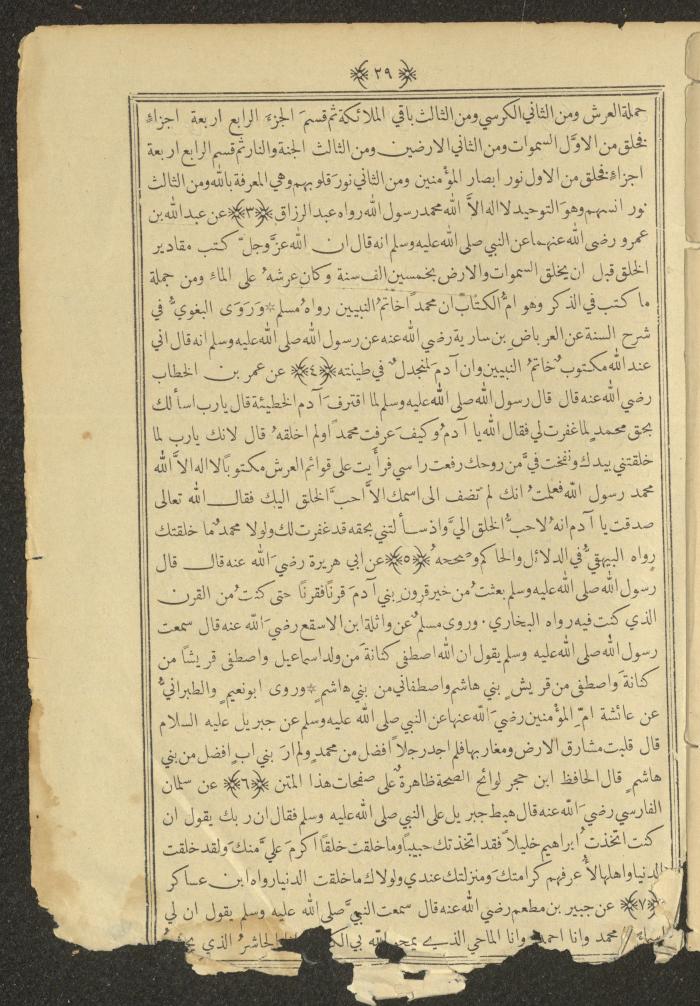 ﴿٢٩﴾
حملة العرش ومن الثاني الكرسي ومن الثالث باقي الملائكة ثم قسمَ الجزءَ الرابع اربعة اجزاءٍ
فخلق من الاوَّل السموات ومن الثاني الارضين ومن الثالث الجنة والنار ثم قسم الرابع اربعة
اجزاءٍ فخلق من الاول نور ابصار المؤمنين ومن الثاني نور قلوبهم وهي المعرفة بالله ومن الثالث
نور انسهم وهو التوحيد لا اله الاَّ الله محمد رسول الله رواه عبد الرزاق ﴿٣﴾ عن عبد الله بن
عمرو رضي الله عنهما عن النبي صلى الله عليه وسلم انه قال ان الله عزَّ وجلَّ كتب مقادير
الخلق قبل ان يخلق السموات والارض بخمسين الف سنة وكان عرشهُ على الماءِ ومن جملة
ما كتب في الذكر وهو امُّ الكتاب ان محمدًا خاتمُ النبيين رواهُ مسلم * وَرَوَى البغويُّ في
شرح السنة عن العرباض بن سارية رضي الله عنه عن رسول الله صلى الله عليه وسلم انه قال اني
عند الله مكتوبٌ خاتمُ النبيين وان آدمَ لمنجدلٌ في طينته ﴿٤﴾ عن عمر بن الخطاب
رضي الله عنه قال قال رسول الله صلى الله عليه وسلم لما اقترفَ آدم الخطيئة قال يارب اسألك
بحق محمدٍ لما غفرت لي فقال الله يا آدمُ وكيفَ عرفت محمدًا ولم اخلقهُ قال لانك يارب لما
خلقتني بيدك ونفخت فيَّ من روحك رفعت راسي فرأيت على قوائم العرش مكتوبًا لا اله الاَّ الله
محمد رسول الله فعلمتُ انك لم تضف الى اسمك الاَّ احبَّ الخلق اليك فقال الله تعالى
صدقت يا آدم انه لاحبُّ الخلق اليَّ واذ سألتني بحقه قد غفرت لك ولولا محمدٌ ما خلقتك
رواه البيهقيُّ في الدلائل والحاكم وصححهُ ﴿٥﴾ عن ابي هريرة رضي الله عنه قال قال
رسول الله صلى الله عليه وسلم بعثتُ من خير قرون بني آدمَ قرنًا فقرنًا حتى كنتُ من القرن
الذي كنت فيه رواه البخاري · وروى مسلمٌ عن واثلة ابن الاسقع رضيَ الله عنه قال سمعت
رسول الله صلى الله عليه وسلم يقول ان الله اصطفى كنانةَ من ولد اسماعيل واصطفى قريشًا من
كنانةَ واصطفى من قريشٍ بني هاشم واصطفاني من بني هاشم * وروى ابو نعيم والطبرانيُّ
عن عائشة امِّ المؤمنين رضيَ الله عنها عن النبي صلى الله عليه وسلم عن جبريل عليه السلام
قال قلبت مشارق الارض ومغاربها فلم اجد رجلاً افضل من محمدٍ ولم ارَ بني ابٍ افضل من بني
هاشم قال الحافظ ابن حجر لوائح الصحة ظاهرةٌ على صفحات هذا المتن ﴿٦﴾ عن سلمان
الفارسي رضيَ الله عنه قال هبط جبريل على النبي صلى الله عليه وسلم فقال ان ربك يقول ان
كنت اتخذتُ ابراهيم خليلاً فقد اتخذتك حبيبًا وما خلقت خلقًا اكرمَ عليَّ منك ولقد خلقت
الدنيا واهلها لأعرفهم كرامتك ومنزلتك عندي ولولاك ما خلقت الدنيا رواه ابن عساكر
﴿٧﴾ عن جبير بن مطعم رضي الله عنه قال سمعت النبيَّ صلى الله عليه وسلم يقول ان لي
محمد وانا احمد وانا الماحي الذي يمحو الله بي وانا الحاشرُ الذي